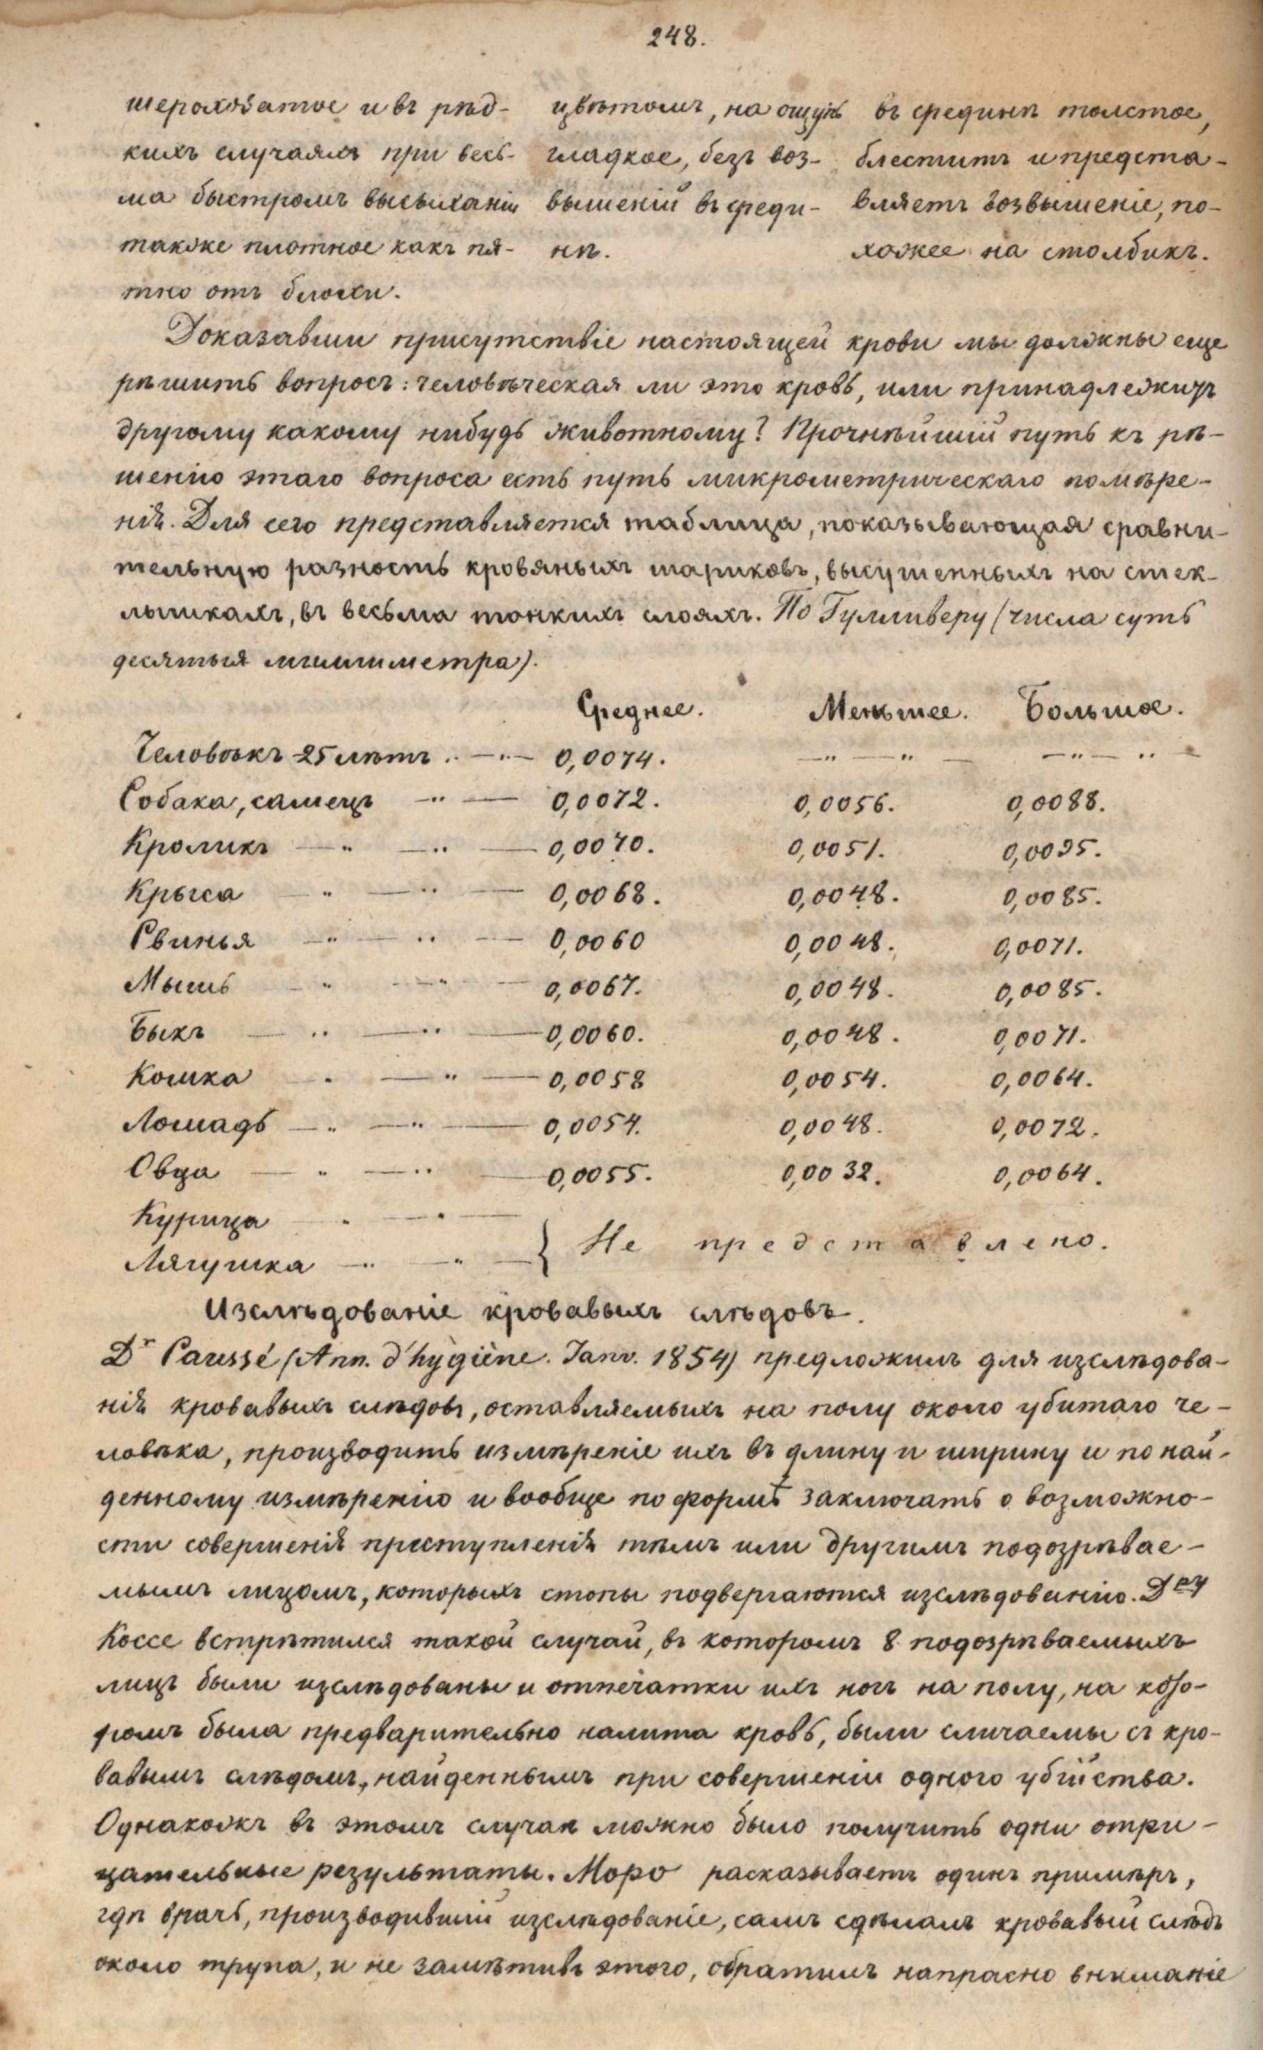 248.
шероховатое и въ рѣд-
кихъ случаяхъ при весь-
ма быстромъ высыханіи
также плотное какъ пя-
тно отъ блохи.
цвѣтомъ, на ощупь
гладкое, безъ воз-
вышеній въ среди-
нѣ.
въ срединѣ толстое,
блеститъ и предста-
вляетъ возвышеніе, по-
хожее на столбикъ.
Доказавши присутствіе настоящей крови мы должны еще
рѣшить вопросъ: человѣческая ли это кровь, или принадлежитъ
другому какому нибудь животному? Прочнѣйшій путь къ рѣ-
шенію этаго вопроса есть путь микрометрическаго помѣре-
нія. Для сего представляется таблица, показывающая сравни-
тельную разность кровяныхъ шариковъ, высушенныхъ на стек-
лышкахъ, въ весьма тонкихъ слояхъ. По Гулливеру (числа суть
десятыя миллиметра).
Среднее. Меньшее. Большое.
Человѣкъ 25 лѣтъ .. —"— 0,0074. —"— —"— — —"— —"— —
Собака, самецъ —"— 0,0072. 0,0056. 0,0088.
Кроликъ —"— —"— 0,0070. 0,0051. 0,0095.
Крыса —"— —"— 0,0068. 0,0048. 0,0085.
Свинья —"— —"— 0,0060 0,0048. 0,0071.
Мышь —"— —"— 0,0067. 0,0048. 0,0085.
Быкъ —"— —"— 0,0060. 0,0048. 0,0071.
Кошка —"— —"— 0,0058 0,0054. 0,0064.
Лошадь —"— —"— 0,0054. 0,0048. 0,0072.
Овца —"— —"— 0,0055. 0,0032. 0,0064.
Курица —"— —"—
Лягушка —"— —"— } Не представлено.
Изслѣдованіе кровавыхъ слѣдовъ.
Dr Caussé (Ann. d'hygiène. Janv. 1854) предложилъ для изслѣдова-
нія кровавыхъ слѣдовъ, оставляемыхъ на полу около убитаго че-
ловѣка, производить измѣреніе ихъ въ длину и ширину и по най-
денному измѣренію и вообще по формѣ заключать о возможно-
сти совершенія преступленія тѣмъ или другимъ подозрѣвае-
мымъ лицомъ, которыхъ стопы подвергаются изслѣдованію. Dру
Коссе встрѣтился такой случай, въ которомъ 8 подозрѣваемыхъ
лицъ были изслѣдованы и отпечатки ихъ ногъ на полу, на кото-
ромъ была предварительно налита кровь, были сличаемы съ кро-
вавымъ слѣдомъ, найденнымъ при совершеніи одного убійства.
Однакожъ въ этомъ случаѣ можно было получить одни отри-
цательные результаты. Моро расказываетъ одинъ примѣръ,
гдѣ врачъ, производившій изслѣдованіе, самъ сдѣлалъ кровавый слѣдъ
около трупа, и не замѣтивъ этого, обратилъ напрасно вниманіе